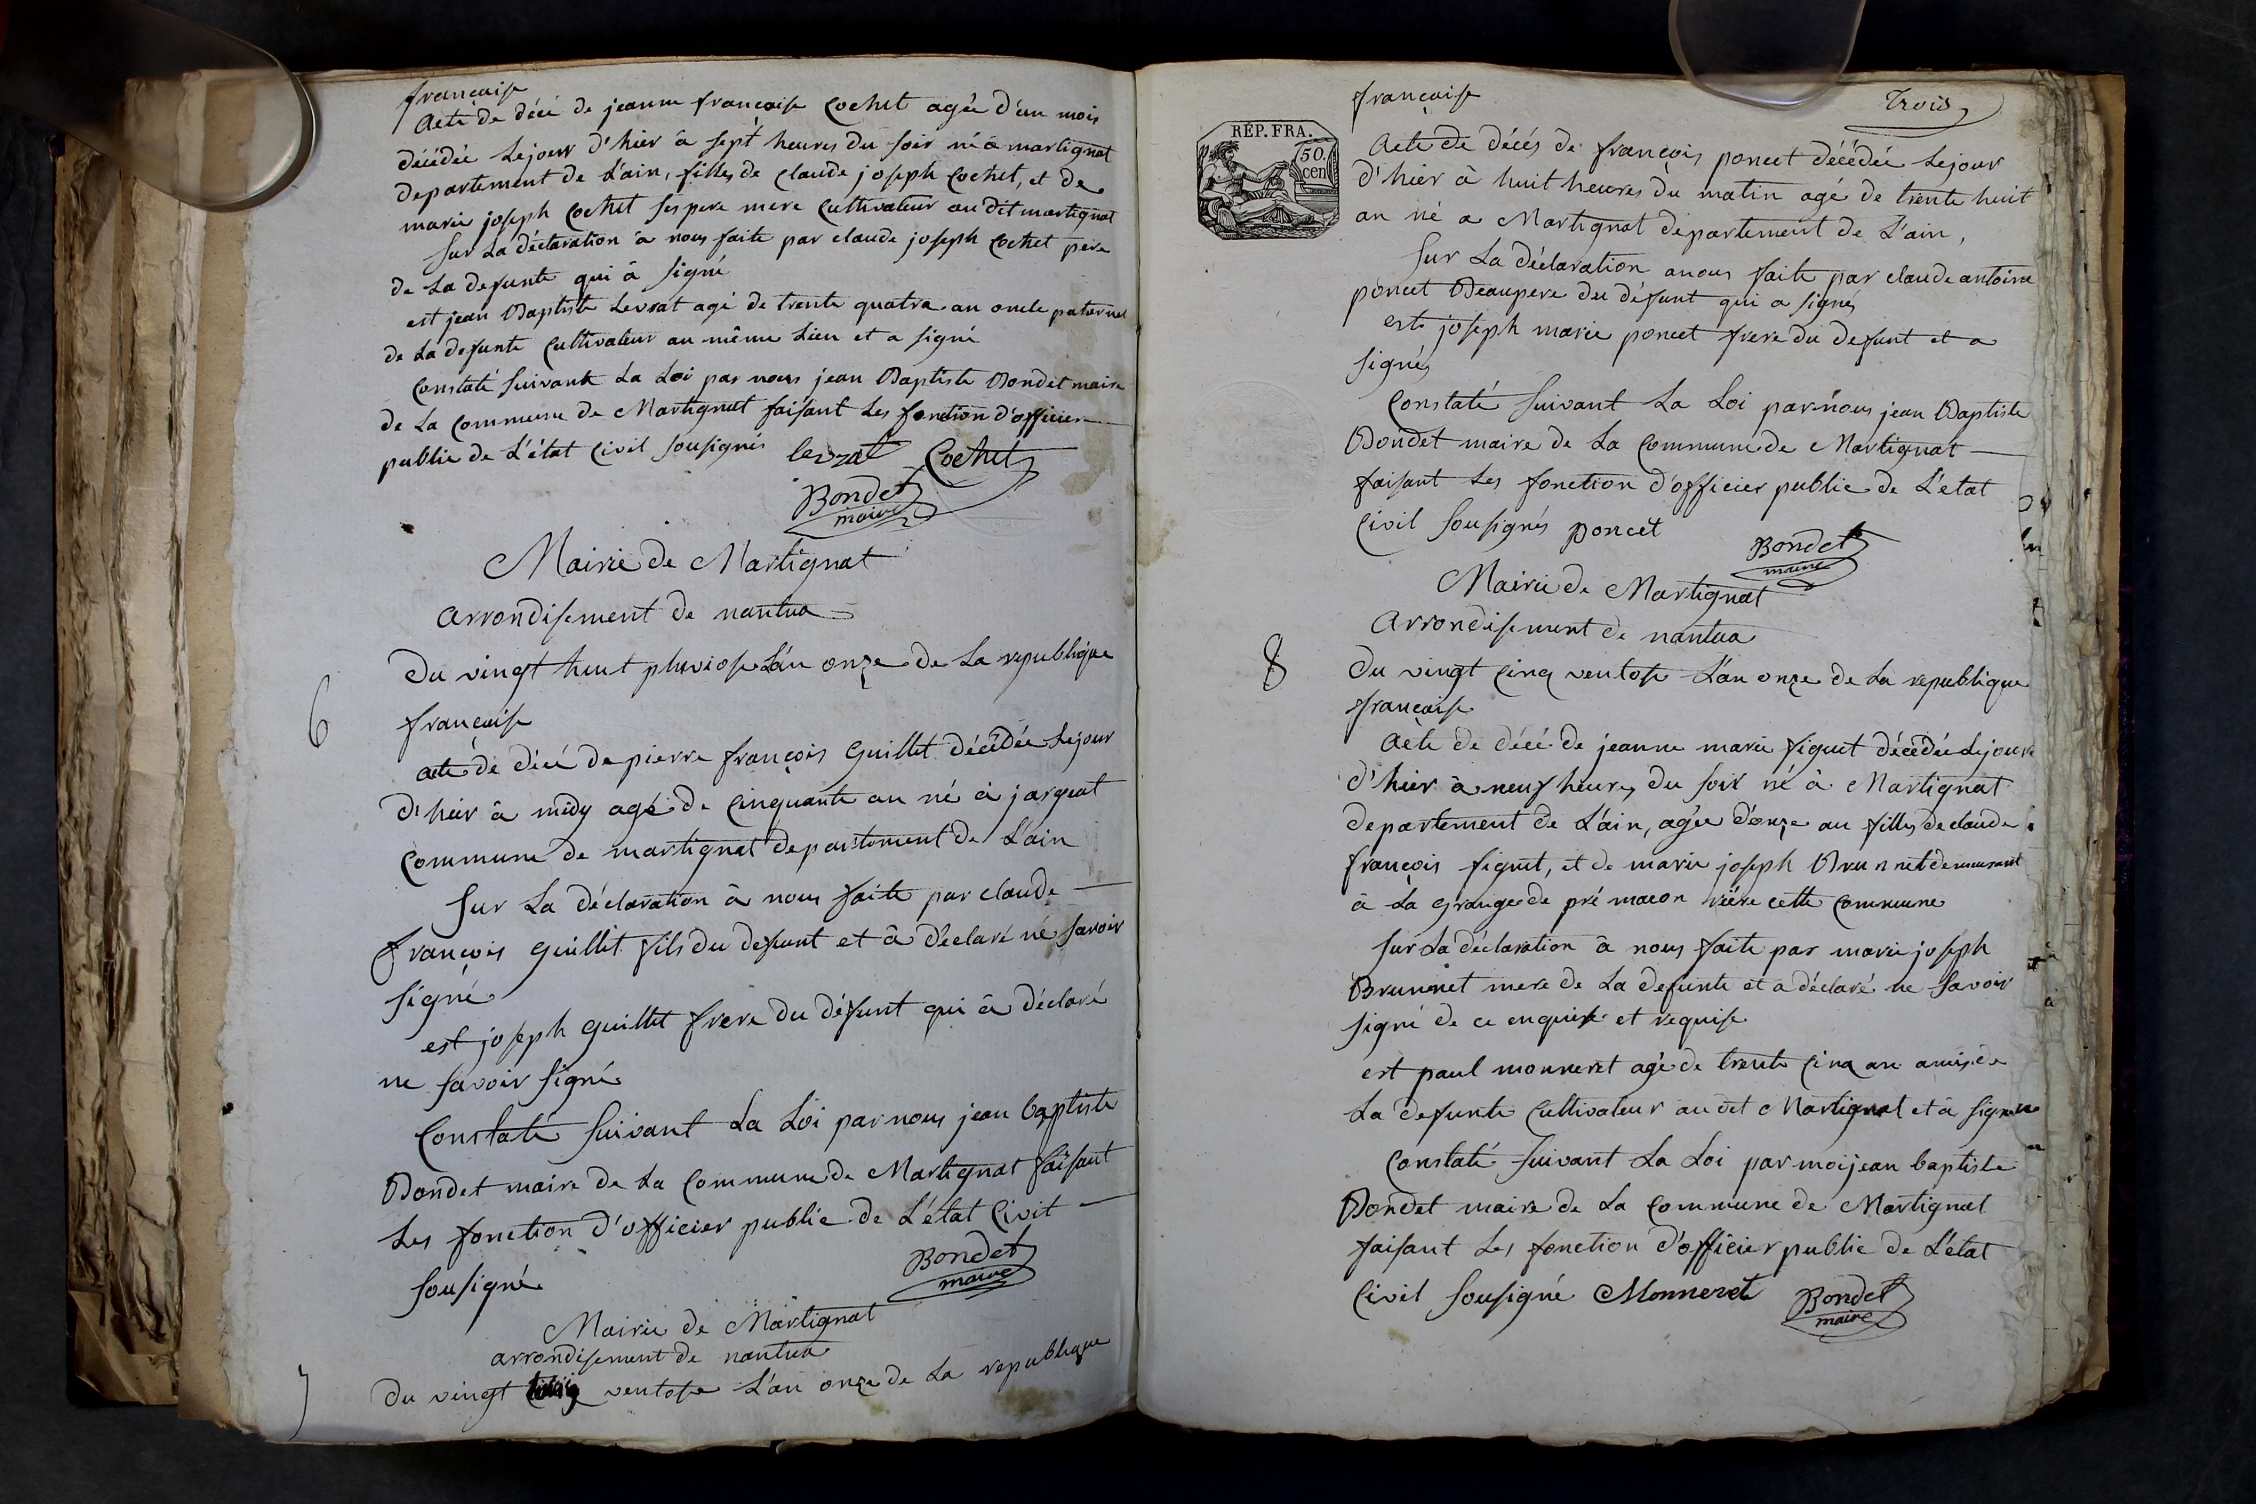 française
Acte de décé de jeanne françoise Cochet agée d'un mois
décédée Le jour d'hier à sept heures du soir né à martignat
departement de L'ain, filles de Claude joseph Cochet, et de
marie joseph Cochet ses pere mere Cultivateur au dit martignat
Sur La déclaration à nous faite par claude joseph Cochet pere
de La defunte qui à signé
est jean Baptiste Levrat agé de trente quatre an oncle paternel
de La defunte Cultivateur au même Lieu et a signé
Constaté suivant La Loi par nous jean Baptiste Bondet maire
de La Commune de Martignat faisant Les fonction d'officier
public de L'état Civil sousignés levrat Cochet
Bondet
maire
Mairie de Martignat
arrondisement de nantua
6
Du vingt huit pluviose L'an onze de La republique
française
acte de décé de pierre françois Guillet décédée Le jour
d'hier à midy agé de Cinquante an né à jargeat
Commune de martignat departement de L'ain
Sur La déclaration à nous faite par claude
françois guillet fils du defunt et à déclaré né savoir
signé
est joseph guillet frere du défunt qui à déclaré
ne savoir signé
Constaté suivant La Loi par nous jean baptiste
Bondet maire de La Commune de Martignat faisant
Les fonction d'officier public de L'état Civit
sousigné
Bondet
maire
Mairie de Martignat
arrondisement de nantua
7
Du vingt ventose L'an onze de La republique
française
Trois
RÉP. FRA.
50.
cen
Acte de décés de françois poncet décédée Le jour
d'hier à huit heures du matin agé de trente huit
an né a Martignat departement de L'ain,
Sur La déclaration anous faite par claude antoine
poncet Beaupere du défunt qui a signés
est joseph marie poncet frere du defunt et a
signés
Constaté suivant La Loi par nous jean Baptiste
Bondet maire de La Commune de Martignat
faisant Les fonction d'officier public de L'etat
Civil sousignés poncet
Bondet
maire
Mairie de Martignat
Arrondisement de nantua
8
Du vingt Cinq ventose L'an onze de La republique
française
Acte de décé de jeanne marie figuet décédée Le jour
d'hier à neuf heures du soir né à Martignat
departement de L'ain, agée d'onze an filles de claude
françois figuet, et de marie joseph Brunnet demeurant
à La grange de pré macon riére cette Commune
Sur La déclaration à nous faite par marie joseph
Brunnet mere de La defunte et a déclaré ne savoir
signé de ce enquise et requise
est paul monneret agé de trente Cinq an amis de
La defunte Cultivateur au dit Martignat et à signé
Constaté suivant La Loi par moi jean baptiste
Bondet maire de La Commune de Martignat
faisant Les fonction d'officier public de L'état
Civil sousigné Monneret
Bondet
maire